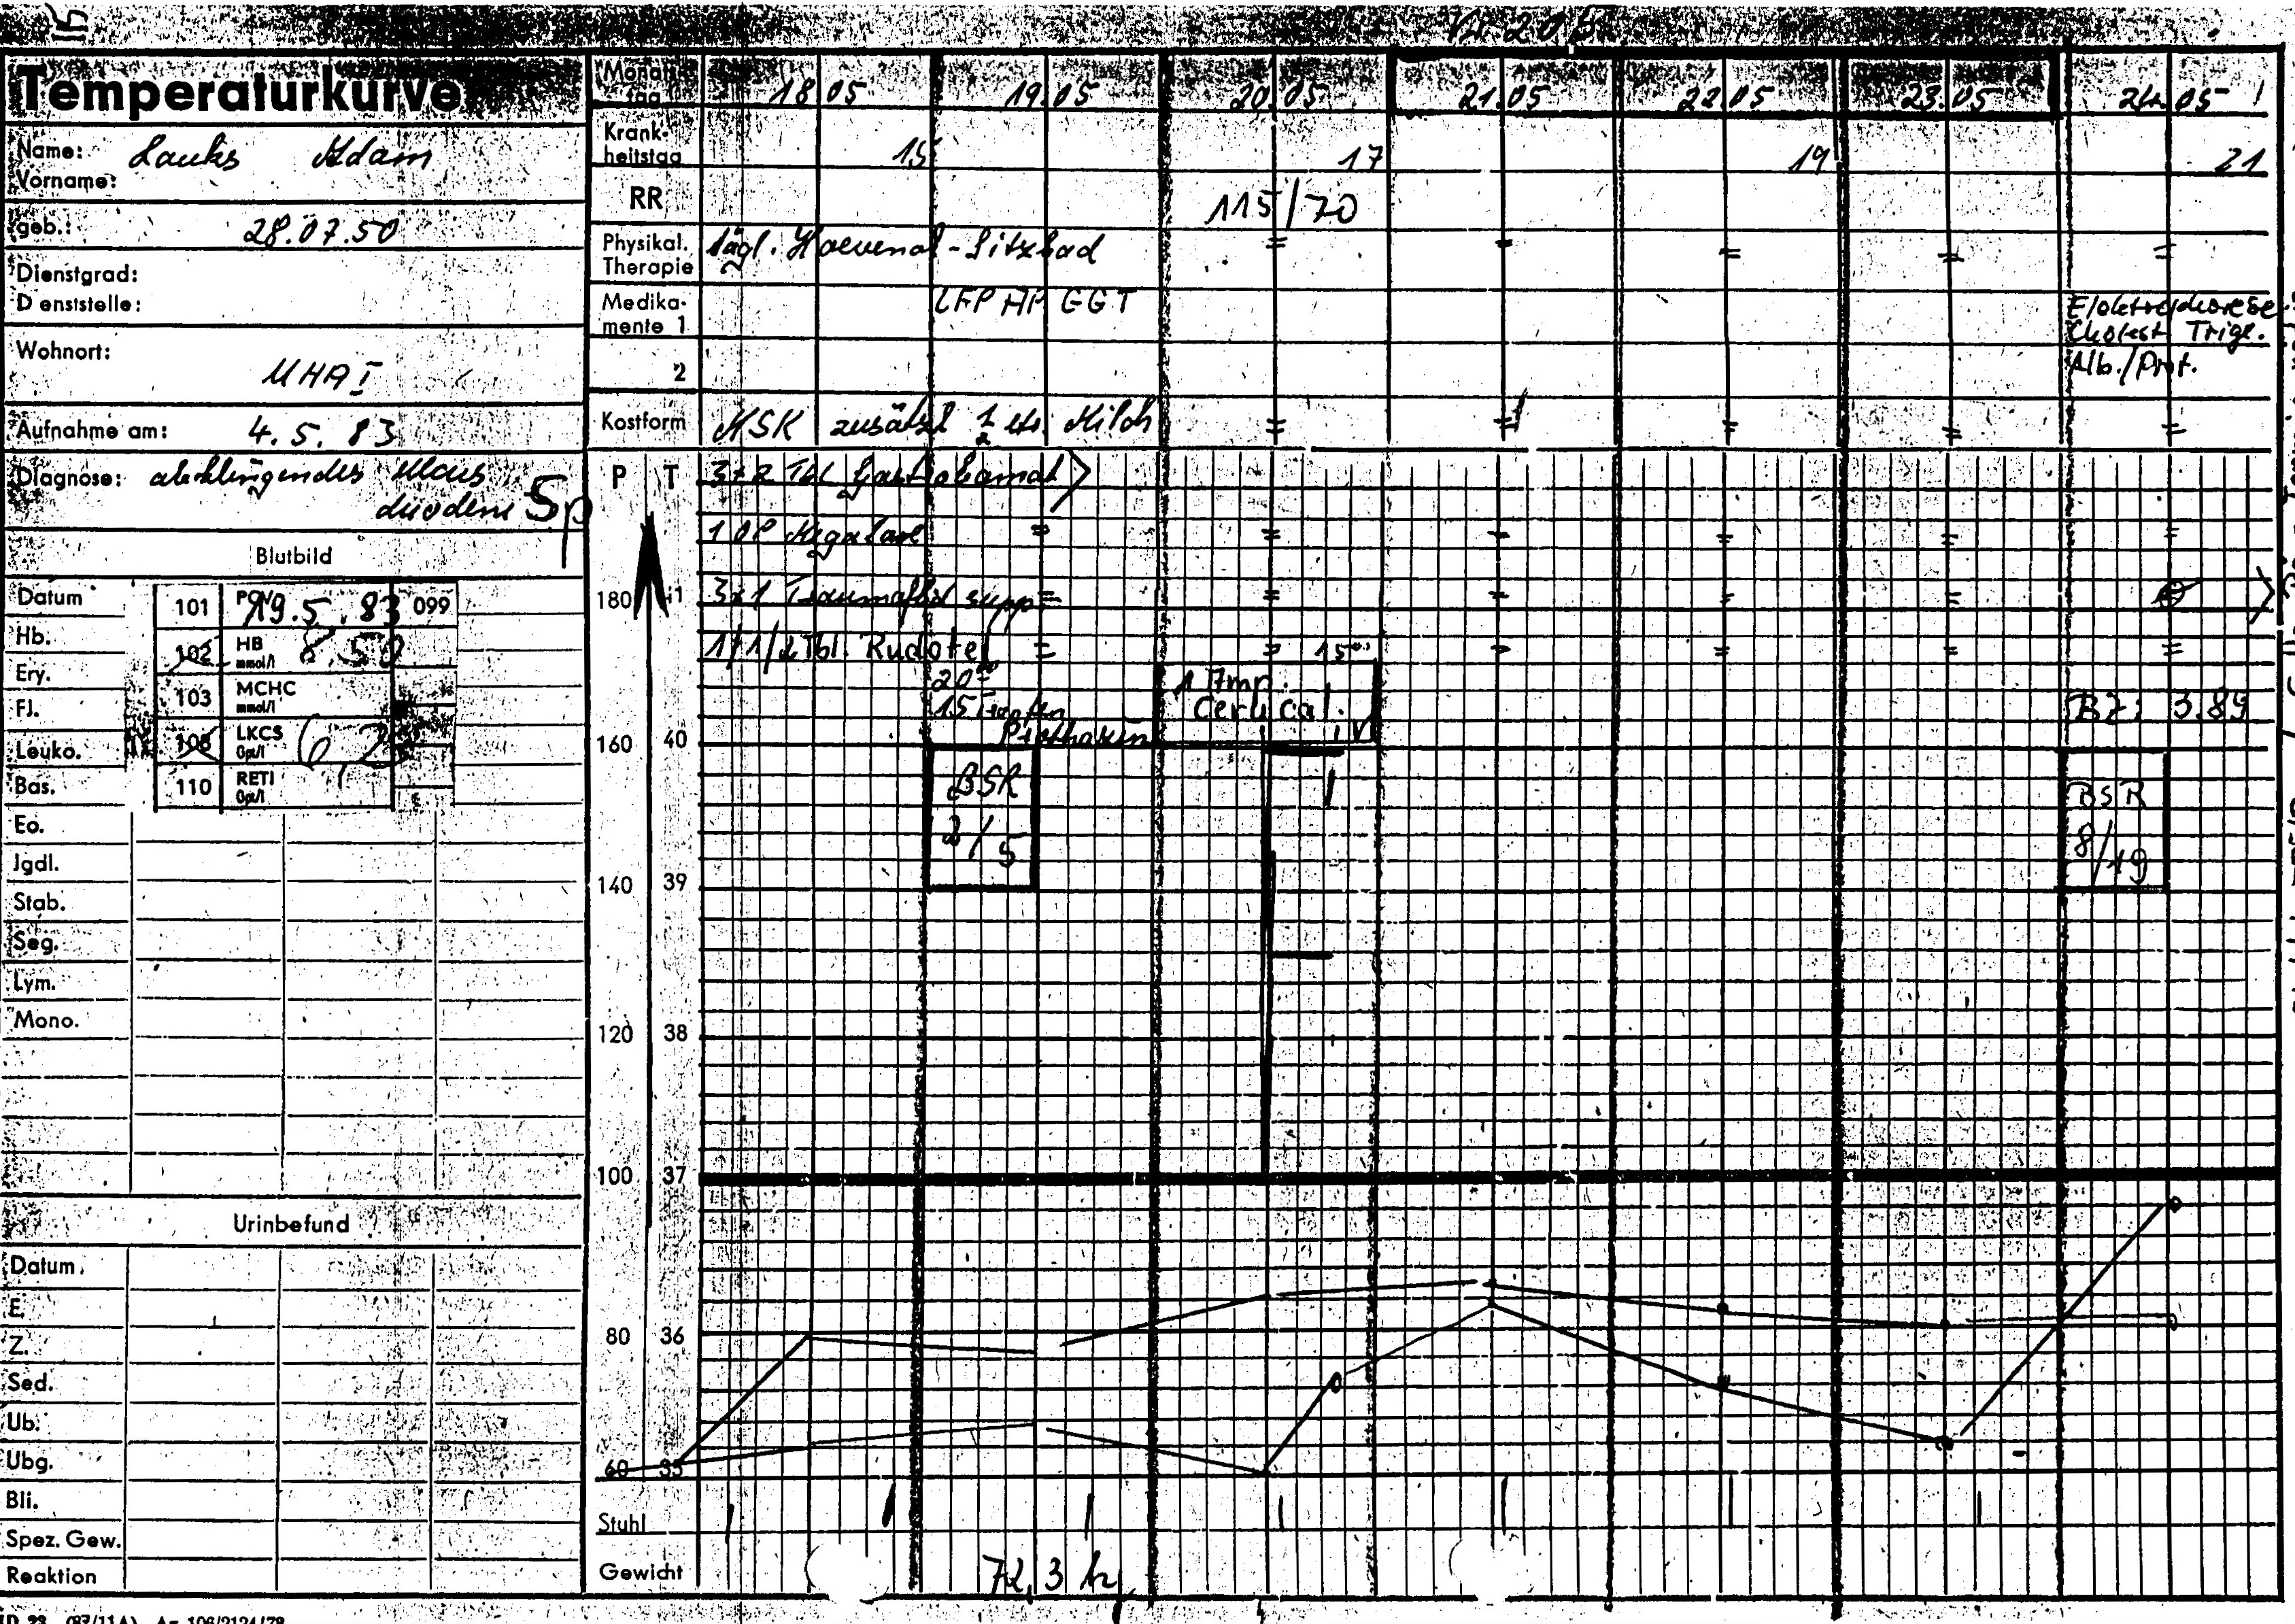 Vi 205
Temperaturkurve
Name: Lauks Adam
Vorname:
geb.: 28.07.50
Dienstgrad:
Dienststelle:
Wohnort:
UHA I
Aufnahme am: 4.5.83
Diagnose: abklingendes Ulcus
duodeni Sp
Blutbild
Datum
Hb.
Ery.
FJ.
Leuko.
Bas.
Eo.
Jgdl.
Stab.
Seg.
Lym.
Mono.
101 19.5.83 099
102 HB mmol/l 8,50
103 MCHC mmol/l
108 LKCS Gpt/l 6,2
110 RETI Gpt/l
Urinbefund
Datum
E.
Z.
Sed.
Ub.
Ubg.
Bli.
Spez. Gew.
Reaktion
Monatstag 18.05 19.05 20.05 21.05 22.05 23.05 24.05
Krankheitstag 15 17 19 21
RR 115/70
Physikal. Therapie tägl. -Sitzbad = = = = =
Medikamente 1 LFP AP GGT Elektrophorese
Cholest. Trigl.
2 Alb./Prot.
Kostform zusätzl 1/2 Ltr. Milch = = = = =
P T 3x2 Tbl
1 OP = = = = = =
180 41 3x1 supp = = = = =
1/1/2 Tbl. Rudotel = = = = = =
15°°
20°°
15 Tropfen
1 Amp.
Cerucal i.V
BZ: 3.89
160 40
BSR
2/5
BSR
8/19
140 39
120 38
100 37
80 36
60 35
Stuhl
Gewicht 72,3 kg